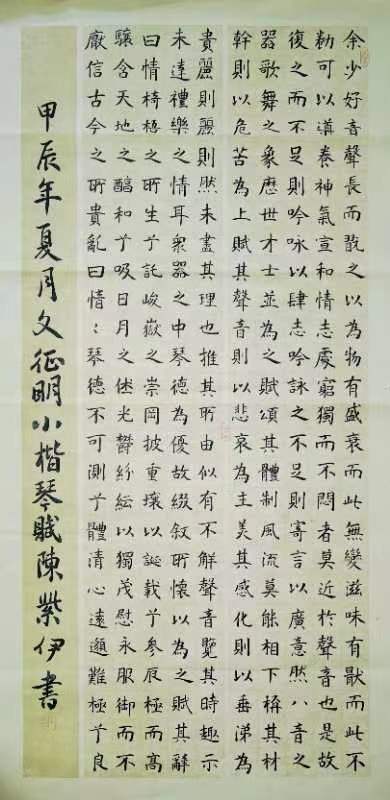 余少好音聲長而翫之以為物有盛衰而此無變滋味有猒而此不
勌可以導養神氣宣和情志處窮獨而不悶者莫近於聲音也是故
復之而不足則吟咏以肆志吟詠之不足則寄言以廣意然八音之
器歌舞之象歷世才士並為之賦頌其體制風流莫能相下稱其材
幹則以危苦為上賦其聲音則以悲哀為主美其感化則以垂涕為
貴麗則麗則然未盡其理也推其所由似有不解聲音覽其時趣示
未達禮樂之情耳眾器之中琴德為優故綴敘所懷以為之賦其辭
曰情椅梧之所生兮託峻嶽之崇岡披重壤以誕載兮參辰極而高
驤含天地之醇和兮吸日月之休光鬱紛紜以獨茂慰永服御而不
厭信古今之所貴亂曰情〻琴德不可測兮體清心遠邈難極兮良
甲辰年夏月文征明小楷琴賦陳紫伊書